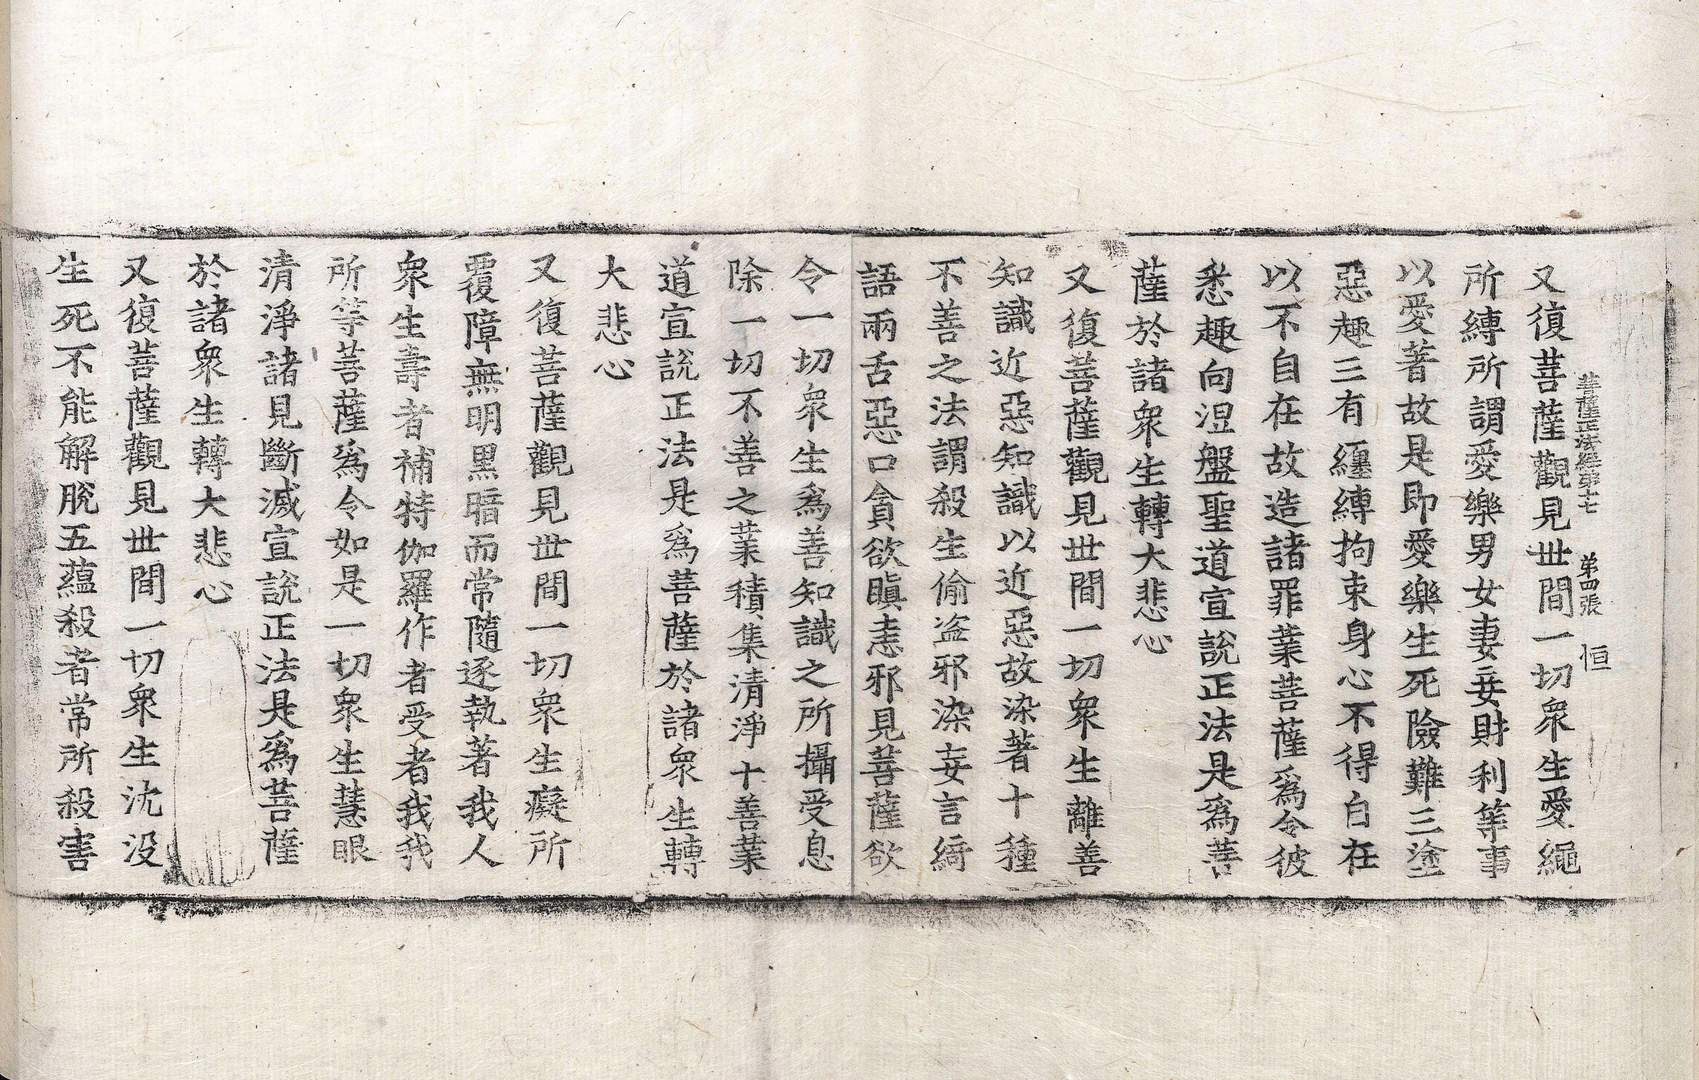 菩薩正法經第十七 第四張 恒
又復菩薩觀見世間一切衆生愛繩
所縛所謂愛樂男女妻妾財利等事
以愛著故是即愛樂生死險難三塗
惡趣三有纏縛拘束身心不得自在
以不自在故造諸罪業菩薩爲令彼
悉趣向涅盤聖道宣說正法是爲菩
薩於諸衆生轉大悲心
又復菩薩觀見世間一切衆生離善
知識近惡知識以近惡故染著十種
不善之法謂殺生偷盗邪染妄言綺
語兩舌惡口貪欲瞋恚邪見菩薩欲
令一切衆生爲善知識之所攝受息
除一切不善之業積集清淨十善業
道宣說正法是爲菩薩於諸衆生轉
大悲心
又復菩薩觀見世間一切衆生癡所
覆障無明黑暗而常隨逐執著我人
衆生壽者補特伽羅作者受者我我
所等菩薩爲令如是一切衆生慧眼
清淨諸見斷滅宣說正法是爲菩薩
於諸衆生轉大悲心
又復菩薩觀見世間一切衆生沈没
生死不能解脫五蘊殺者常所殺害